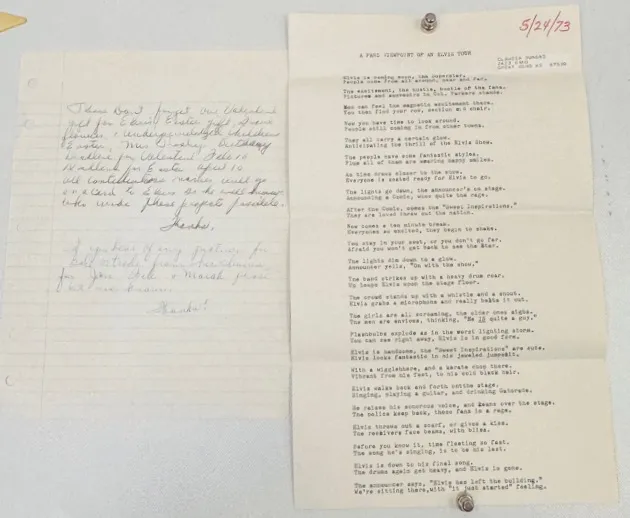 Please Don't forget our Valentine
gift for Elvis, Easter gift, Grave
flowers, Underprivileged childrens
Easter, Mrs Presley Birthday
Deadline for Valentine Feb 10
Deadline for Easter April 10
all contributors names will go
on a card to Elvis so he will know
who made these projects possible.
Thanks,
for
for Jan Feb & March
Thanks!
5/24/73
A FANS VIEWPOINT OF AN ELVIS TOUR
Elvis is coming soon, the superstar.
People come from all around, near and far.
The excitement, the hustle, bustle of the fans.
Pictures and souvenirs in Col. Parkers stands.
You can feel the magnetic excitement there.
You then find your row, section and chair.
Now you have time to look around.
People still coming in from other towns.
They all carry a certain glow.
Anticipating the thrill of the Elvis Show.
The people have some fantastic styles.
Plus all of them are wearing happy smiles.
As time draws closer to the show.
Everyone is seated ready for Elvis to go.
The lights go down, the announcer's on stage.
Announcing a Comic, who's quite the rage.
After the Comic, comes the "Sweet Inspirations."
They are loved threw out the nation.
Now comes a ten minute break.
Everyones so excited, they begin to shake.
You stay in your seat, or you don't go far.
Afraid you won't get back to see the Star.
The lights dim down to a glow.
Announcer yells, "On with the show."
The band strikes up with a heavy drum roar.
Up leaps Elvis upon the stage floor.
The crowd stands up with a whistle and a shout.
Elvis grabs a microphone and really belts it out.
The girls are all screaming, the older ones sigh.
The men are envious, thinking, "He is quite a guy."
Flashbulbs explode as in the worst lighting storm.
You can see right away, Elvis is in good form.
Elvis is handsome, the "Sweet Inspirations" are cute.
Elvis looks fantastic in his jeweled jumpsuit.
With a wiggle here, and a karate chop there.
Vibrant from his feet, to his cold black hair.
Elvis walks back and forth onthe stage.
Singing, playing a guitar, and drinking Gatorade.
He raises his sonorous voice, and leans over the stage.
The police keep back, these fans in a rage.
Elvis throws out a scarf, or gives a kiss.
The receivers face beams, with bliss.
Before you know it, time fleeting so fast.
The song he's singing, is to be his last.
Elvis is down to his final song.
The drums again get heavy, and Elvis is gone.
The announcer says, "Elvis has left the building."
We're sitting there,with "it just started" feeling.